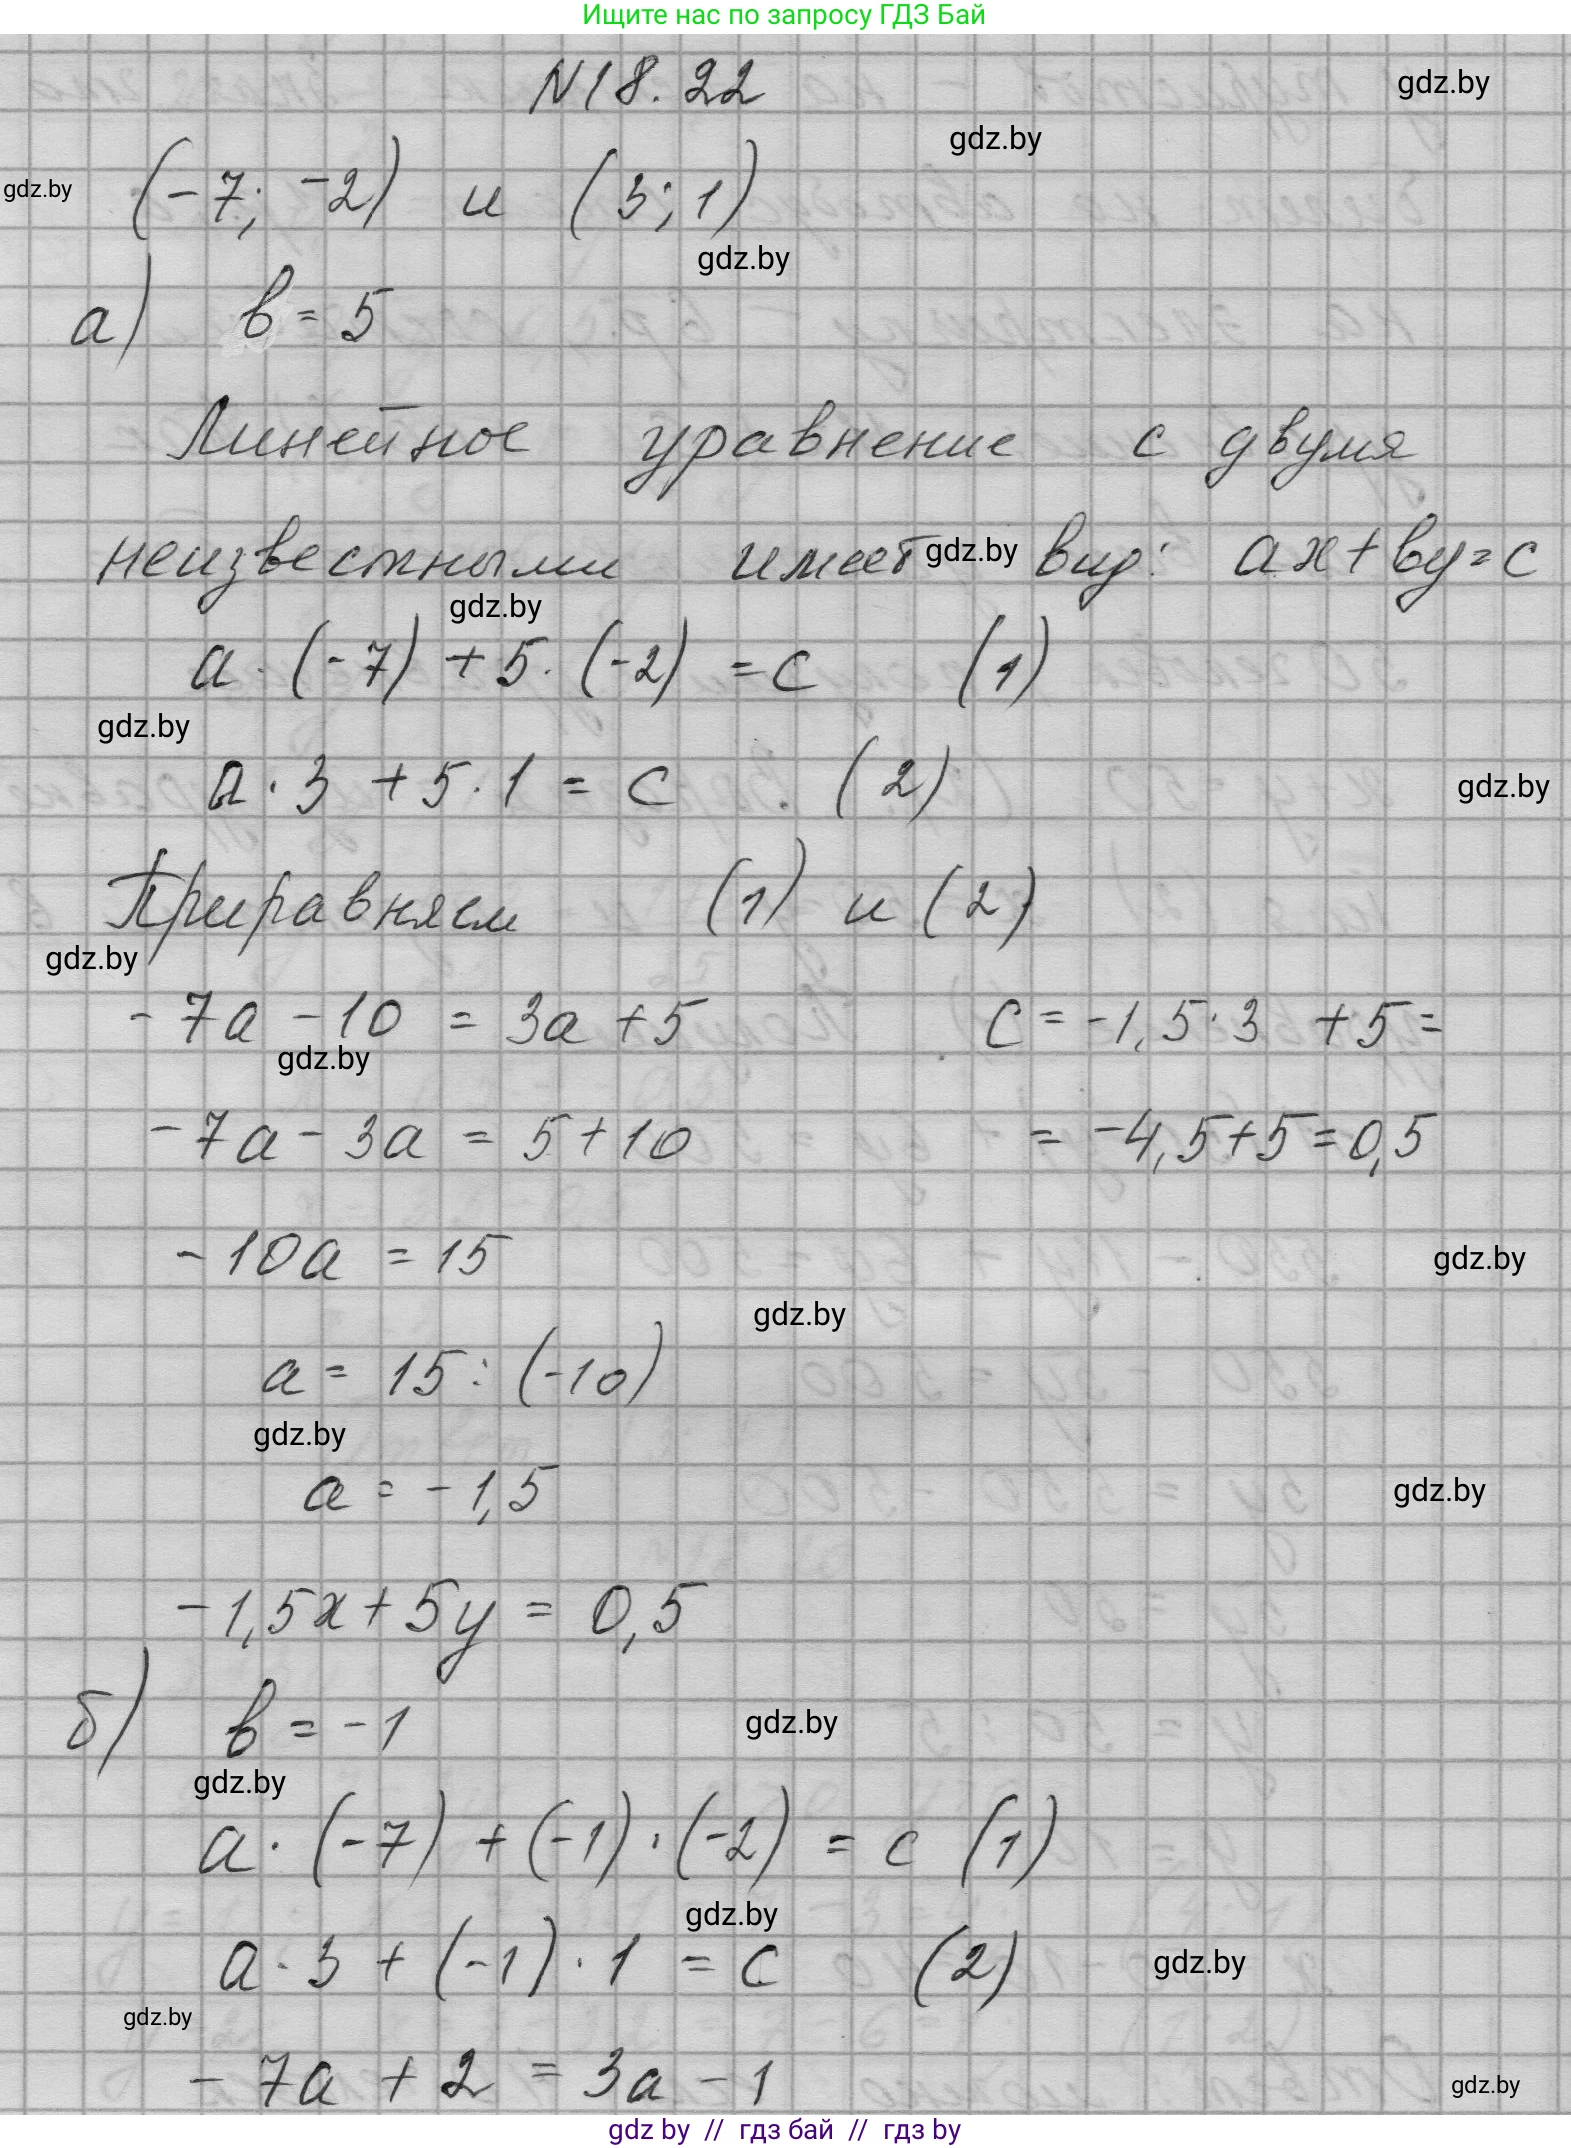 Ищите нас по запросу ГДЗ Бай
N18.22
gdz.by
gdz.by
gdz.by
(-7; -2) и (3; 1)
gdz.by
а) в = 5
Линейное уравнение с двумя
неизвестными имеет gdz.by вид: ax+by=c
gdz.by
a · (-7) + 5 · (-2) = c (1)
gdz.by
a · 3 + 5 · 1 = c (2)
gdz.by
Приравняем (1) и (2)
gdz.by
-7a - 10 = 3a + 5 c = -1,5 · 3 + 5 =
gdz.by
-7a - 3a = 5 + 10 = -4,5+5=0,5
-10a = 15
gdz.by
gdz.by
a = 15 : (-10)
gdz.by
a = -1,5
gdz.by
-1,5x + 5y = 0,5
б) в = -1
gdz.by
gdz.by
a · (-7) + (-1) · (-2) = c (1)
gdz.by
a · 3 + (-1) · 1 = c (2)
gdz.by
gdz.by
-7a + 2 = 3a - 1
gdz.by
gdz by // гдз бай // гдз by